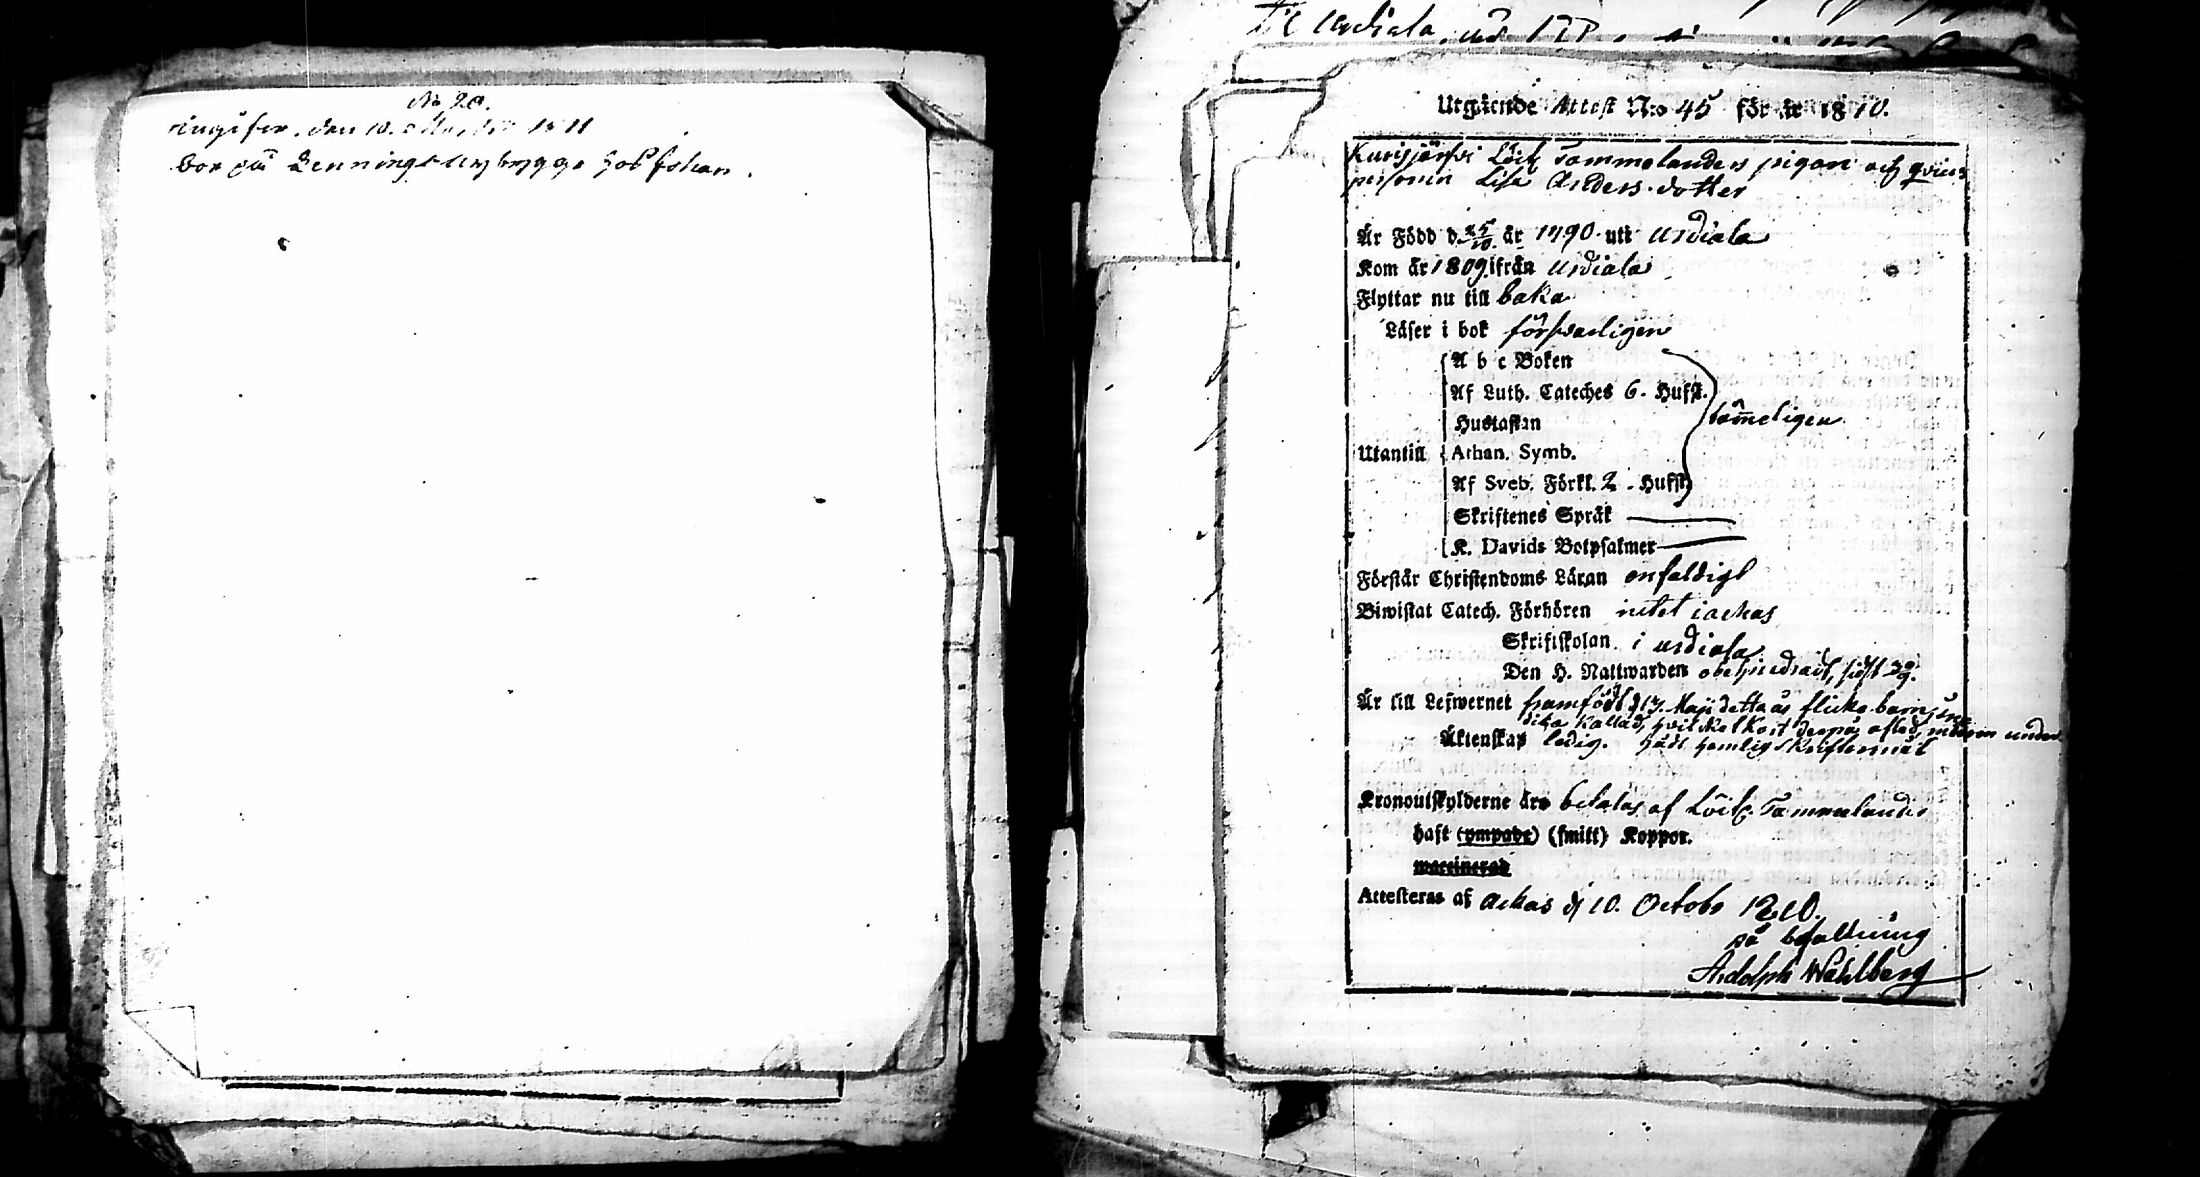 No 20.
ingifven den 10. 1811
bor på Lennings nybygge hos Johan.
Til Urdiala
Utgående Attest N:o 45 för år 1810.
Kurisjärfvi Löit: Tammelanders pigan och qvins
personen Lisa Anders-dotter
Är Född d. 25/10. år 1790. uti Urdiala
Kom år 1809 ifrån Urdiala
Flyttar nu till baka
Läser i bok försvarligen
A b c Boken
Af Luth. Cateches 6. Hufst.
Hustaflan tämeligen
Utantill Athan. Symb.
Af Sveb. Förkl. 2. Hufst.
Skriftenes Språk ——
K. Davids Botpsalmer ——
Förstår Christendoms Läran enfaldigt
Biwistat Catech. Förhören intet i ackas
Skriftskolan i Urdiala
Den H. Nattwarden obehindrad, sidst
Är till Lefwernet framfödt d 17. Maji detta år flicke barn
Lisa kallad, hvilket kort derpå afled, modren under
Äktenskap ledig. gådt hemlig skriftermål
Kronoutskylderne äro betalas af Löit: Tammelander
haft (ympade) (smitt) Koppor.
waccinerad
Attesteras af Ackas d 10. Octobr 1810.
på befallning
Adolph Wahlberg